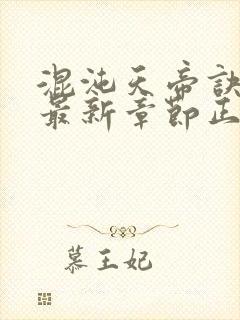 混沌天帝訣
最新章節正
慕王妃